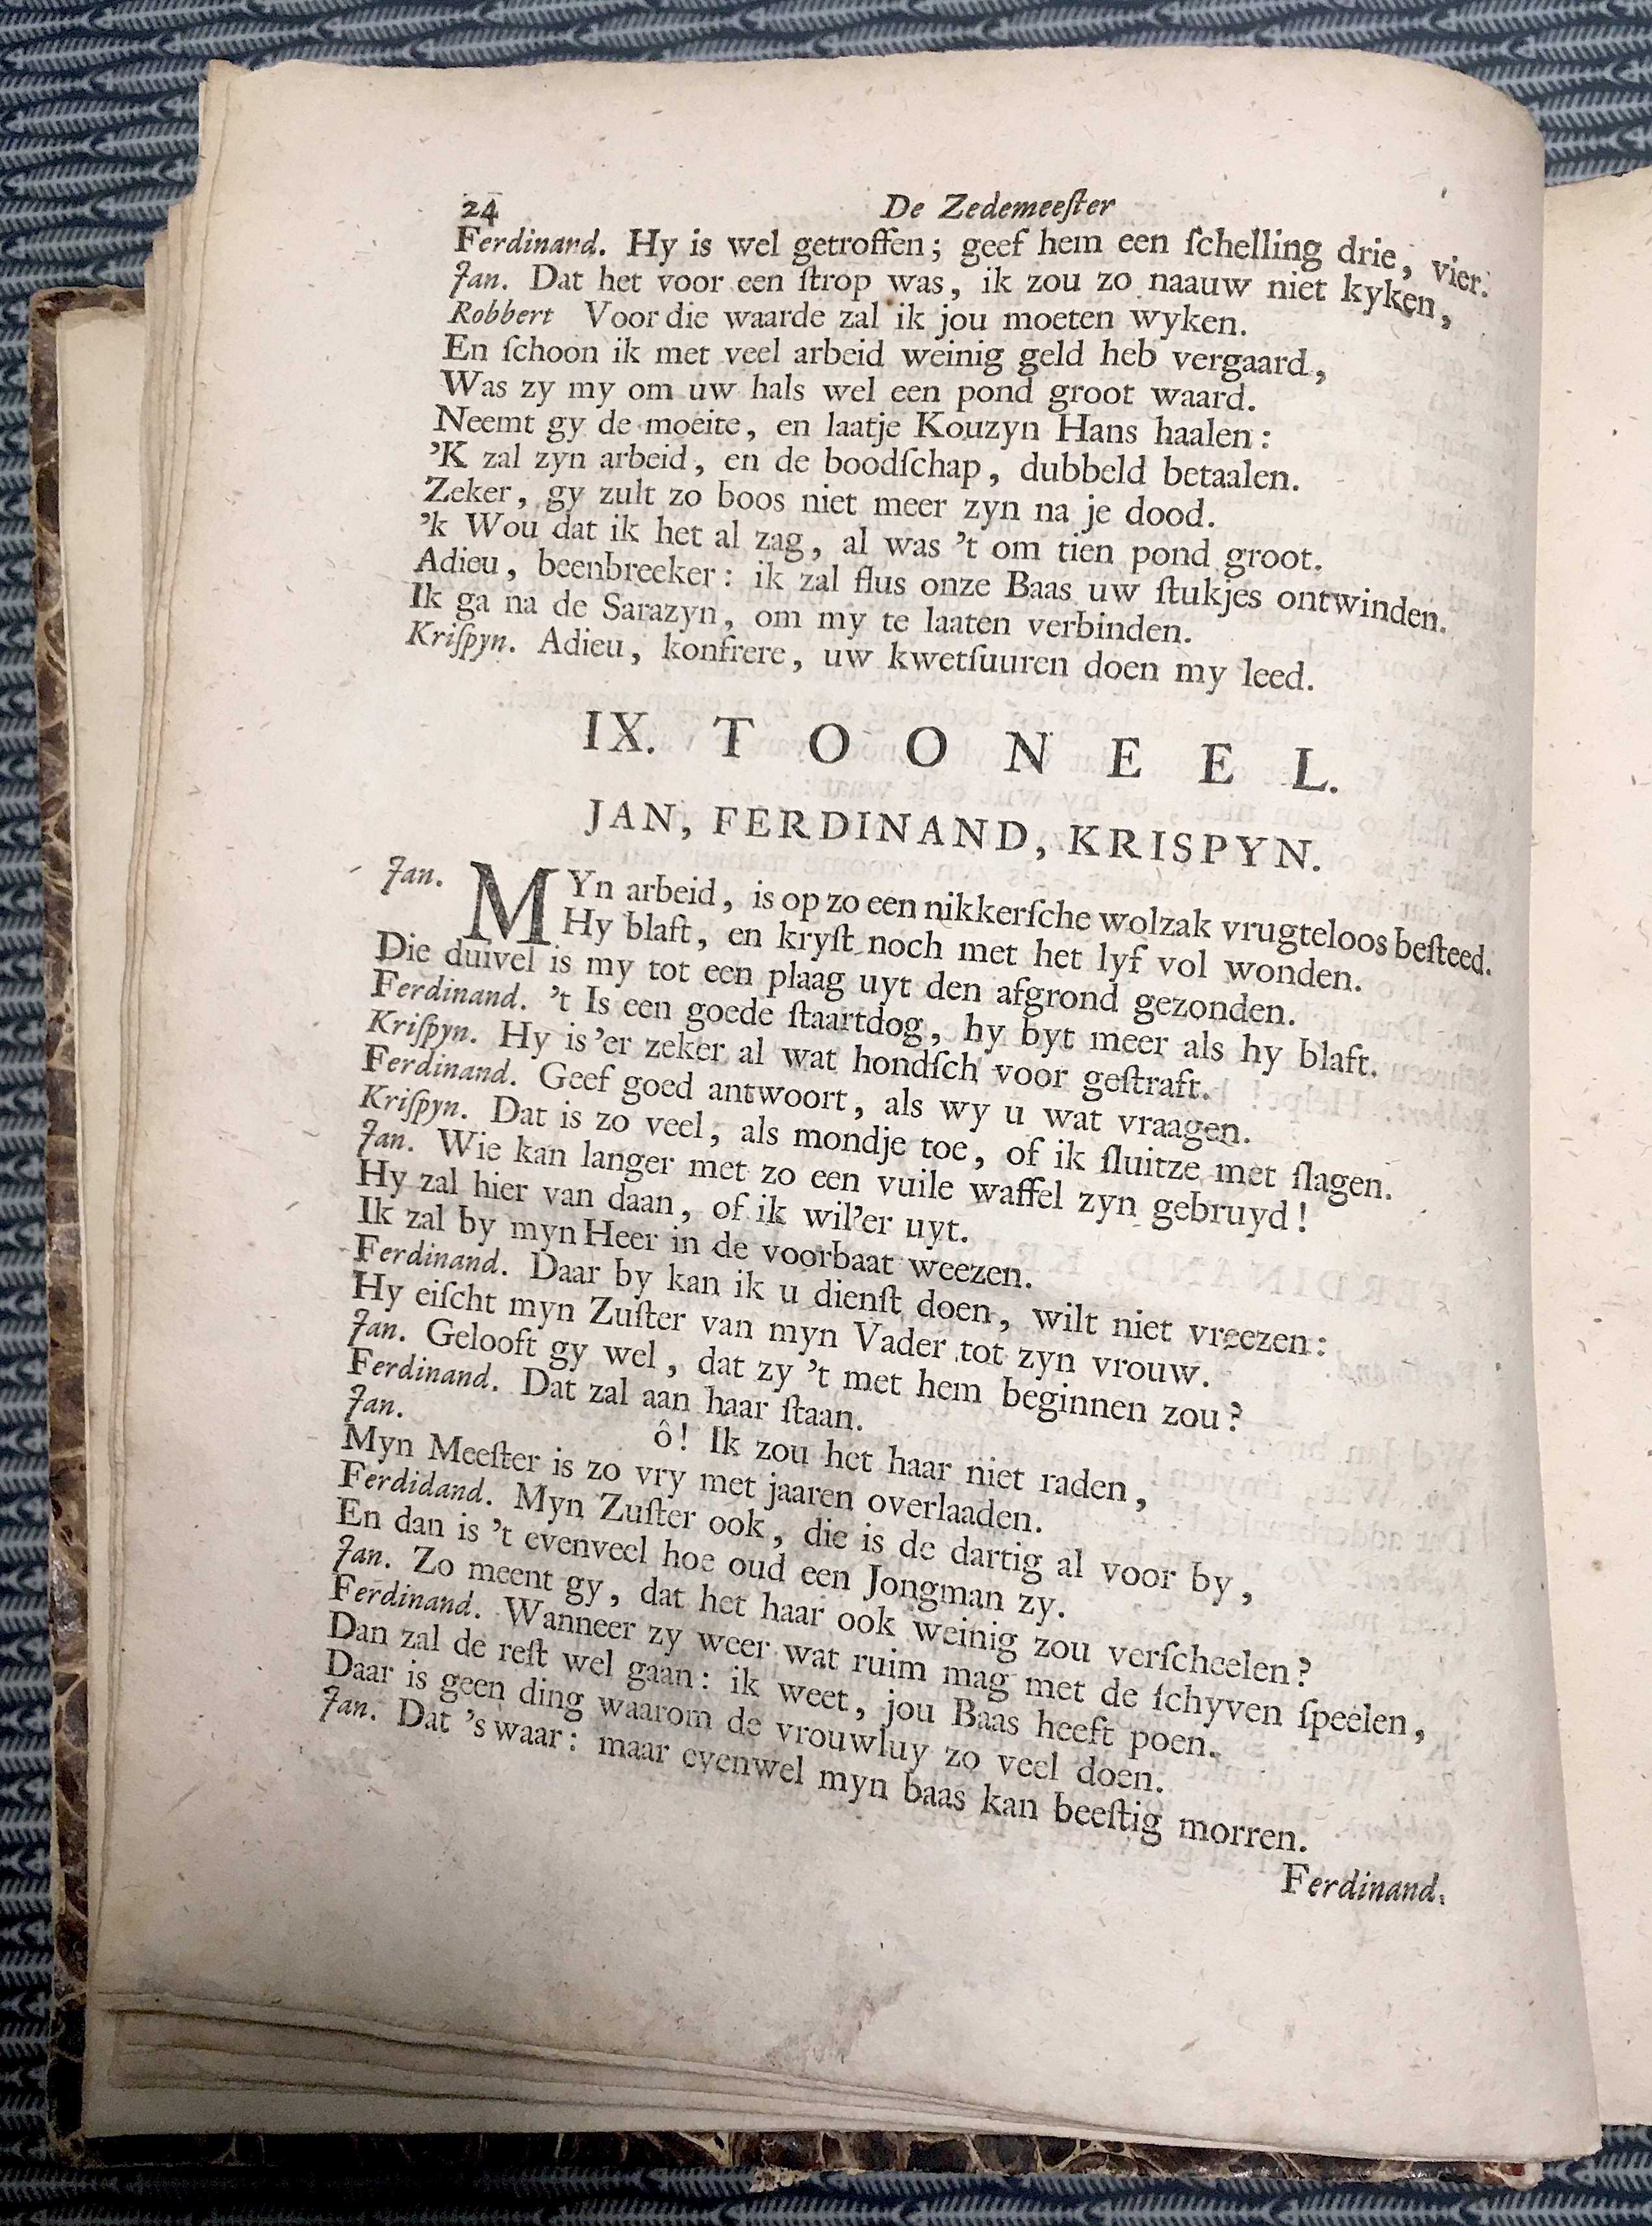 24 De Zedemeeſter
Ferdinand. Hy is wel getroffen; geef hem een ſchelling drie, vier.
Jan. Dat het voor een ſtrop was, ik zou zo naauw niet kyken,
Robbert Voor die waarde zal ik jou moeten wyken.
En ſchoon ik met veel arbeid weinig geld heb vergaard,
Was zy my om uw hals wel een pond groot waard.
Neemt gy de moeite, en laatje Kouzyn Hans haalen:
’K zal zyn arbeid, en de boodſchap, dubbeld betaalen.
Zeker, gy zult zo boos niet meer zyn na je dood.
’k Wou dat ik het al zag, al was ’t om tien pond groot.
Adieu, beenbreeker: ik zal flus onze Baas uw ſtukjes ontwinden.
Ik ga na de Sarazyn, om my te laaten verbinden.
Kriſpyn. Adieu, konfrere, uw kwetſuuren doen my leed.
IX. TOONEEL.
JAN, FERDINAND, KRISPYN.
Jan. MYn arbeid, is op zo een nikkerſche wolzak vrugteloos beſteed.
Hy blaſt, en kryſt noch met het lyf vol wonden.
Die duivel is my tot een plaag uyt den afgrond gezonden.
Ferdinand. ’t Is een goede ſtaartdog, hy byt meer als hy blaft.
Kriſpyn. Hy is ’er zeker al wat hondſch voor geſtraft.
Ferdinand. Geef goed antwoort, als wy u wat vraagen.
Kriſpyn. Dat is zo veel, als mondje toe, of ik ſluitze met ſlagen.
Jan. Wie kan langer met zo een vuile waffel zyn gebruyd!
Hy zal hier van daan, of ik wil’er uyt.
Ik zal by myn Heer in de voorbaat weezen.
Ferdinand. Daar by kan ik u dienſt doen, wilt niet vreezen:
Hy eiſcht myn Zuſter van myn Vader tot zyn vrouw.
Jan. Gelooft gy wel, dat zy ’t met hem beginnen zou?
Ferdinand. Dat zal aan haar ſtaan.
Jan. ô! Ik zou het haar niet raden,
Myn Meeſter is zo vry met jaaren overlaaden.
Ferdidand. Myn Zuſter ook, die is de dartig al voor by,
En dan is ’t evenveel hoe oud een Jongman zy.
Jan. Zo meent gy, dat het haar ook weinig zou verſcheelen?
Ferdinand. Wanneer zy weer wat ruim mag met de ſchyven ſpeelen,
Dan zal de reſt wel gaan: ik weet, jou Baas heeft poen.
Daar is geen ding waarom de vrouwluy zo veel doen.
Jan. Dat ’s waar: maar evenwel myn baas kan beeſtig morren.
Ferdinand.